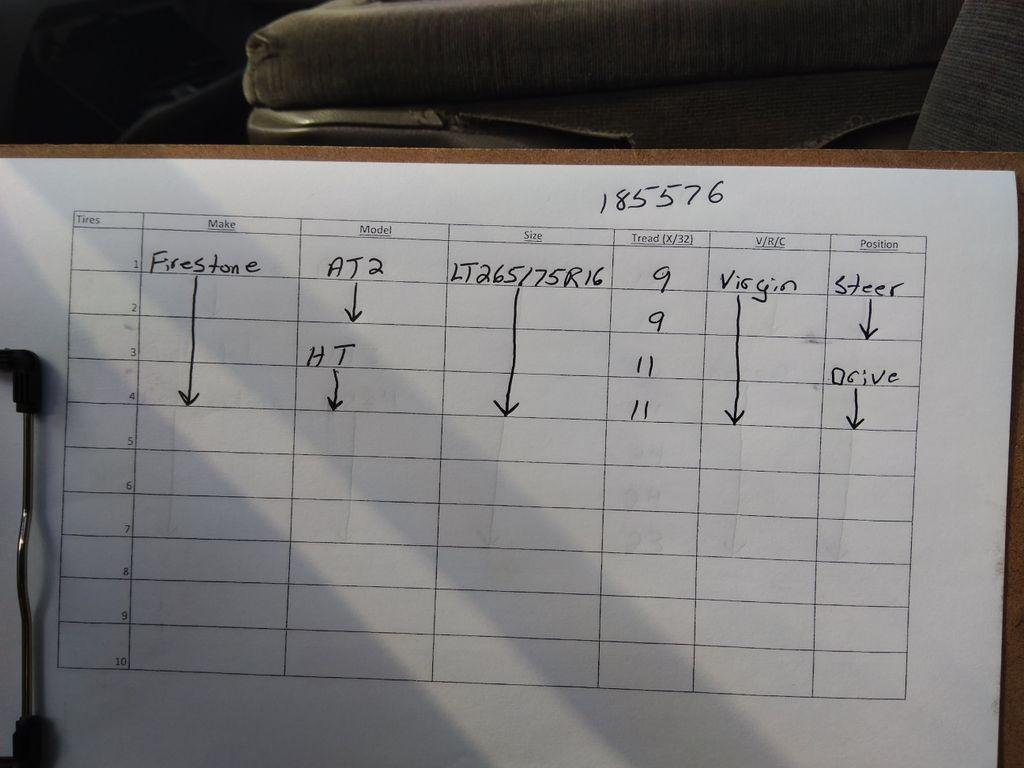 185576
Tires Make Model Size Tread (X/32) V/R/C Position
1 Firestone AT2 LT265/75R16 9 Virgin Steer
2 9
3 HT 11 Drive
4 11
5
6
7
8
9
10